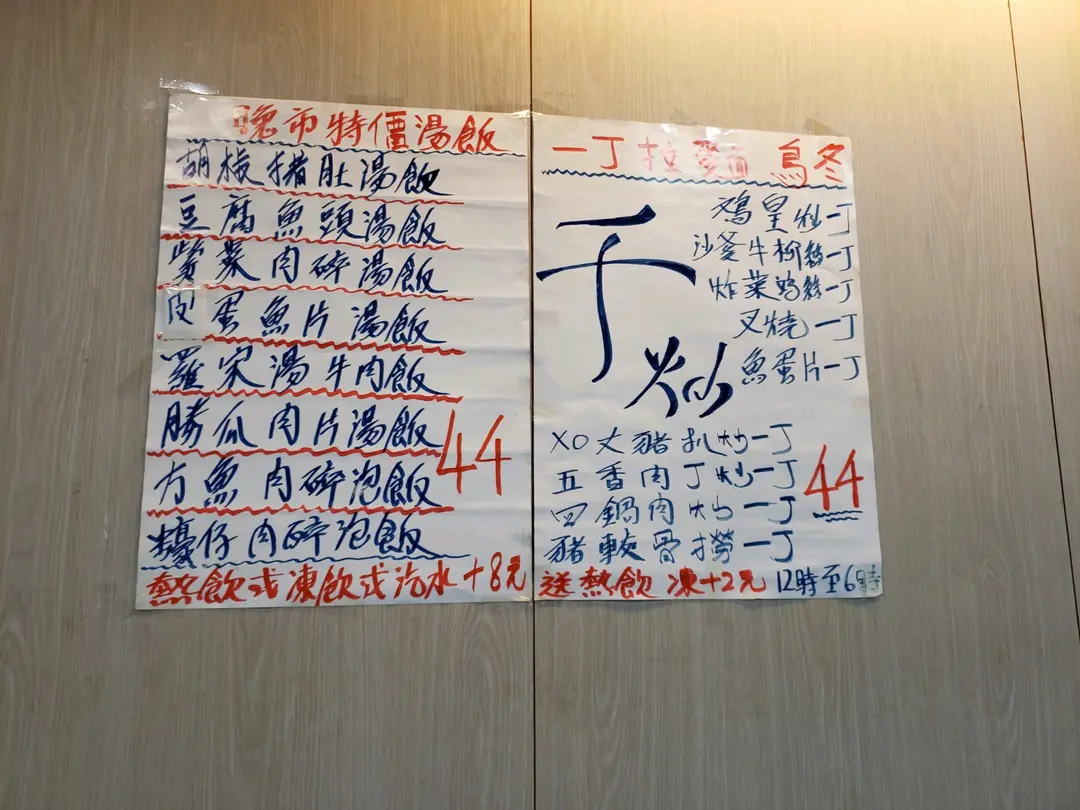 晚市特價湯飯
胡椒猪肚湯飯
豆腐魚頭湯飯
紫菜肉碎湯飯
皮蛋魚片湯飯
羅宋湯牛肉飯
勝瓜肉片湯飯
44
方魚肉碎泡飯
蠔仔肉碎泡飯
熱飲或凍飲或汽水+8元
一丁拉麵 烏冬
干炒
鴻皇炒一丁
沙爹牛柳絲一丁
炸菜鴻絲一丁
叉燒一丁
魚蛋片一丁
XO丈豬扒炒一丁
五香肉丁炒一丁
回鍋肉炒一丁
44
豬軟骨撈一丁
送熱飲 凍+2元 12時至6時